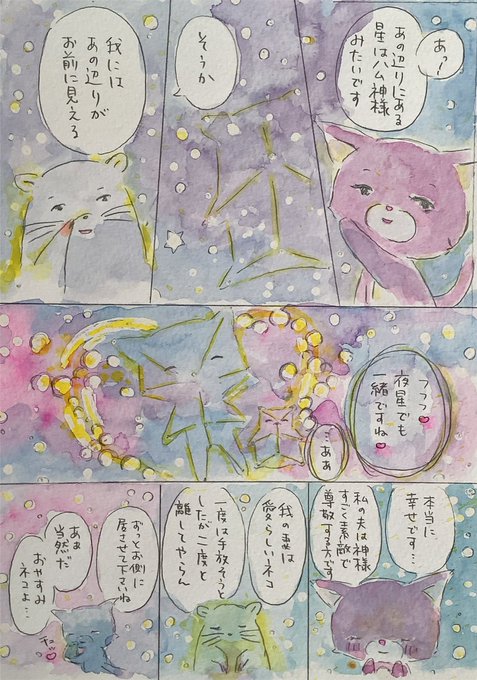 あっ!
あの辺りにある
星はハム神様
みたいです
そうか
我には
あの辺りが
お前に見える
フフフ
夜星でも
一緒ですね
…ああ
本当に
幸せです…
私の夫は神様
すごく素敵で
尊敬する方です
我の妻は
愛らしいネコ
一度は手放そうと
したが二度と
離してやらん
ずっとお側に
居させて下さいね
あぁ
当然だ
おやすみ
ネコよ…
チュッ